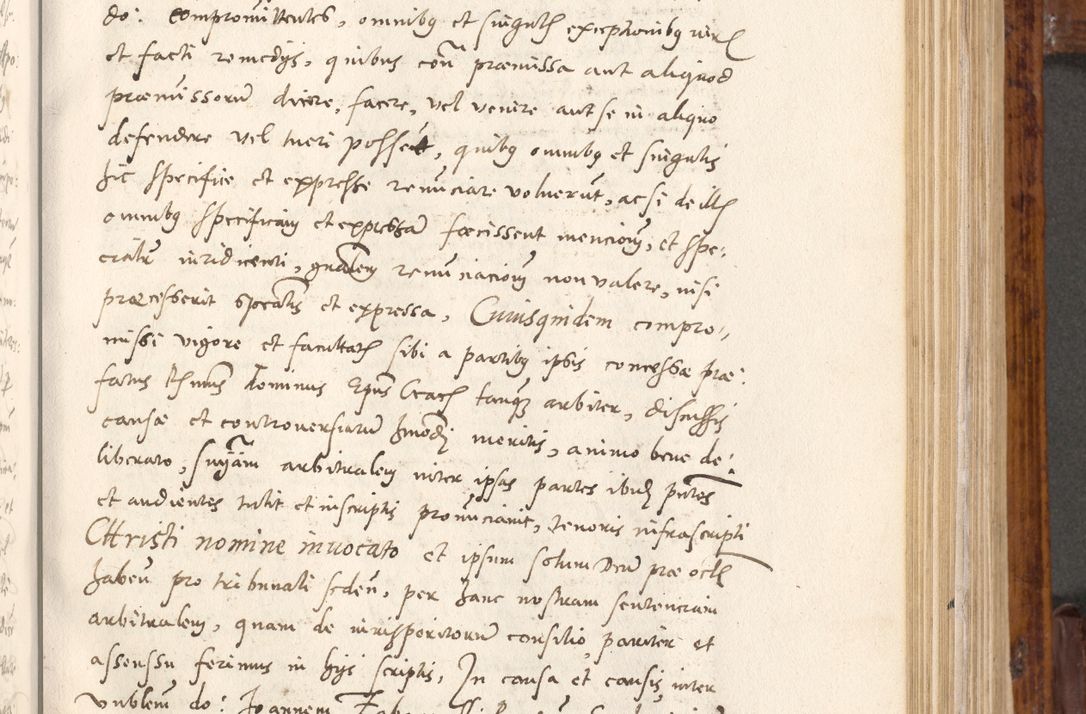 do: compromittentes, omnibq et singulis exceptionibq iuris
et facti remedijs, quibus con praemissa aut aliquod
praemissorum dicere, facere, vel venire aut se in aliquo
defendere vel tueri possent, quibq omnibq et singulis
hic specifice et expresse renunciare voluerut, ac si de illis
omnibq specificam et expressam fecissent mencionem, et spe-
cialem in iuridicenti, gnalem renunciacionem non valere, nisi
praecesserit specialis et expressa, Cuiusquidem compro-
missi vigore et facultatis sibi a partibq ipsis concessae prae-
fatus Rssimus Dominus Epus Crac tanquam arbiter, discussis
causae et controversiarum hmoodi meritis, animo bene de-
liberato, sniam arbitralem inter ipsas partes ibid pntes
et audientes tulit et inscriptis pronunciavit, tenoris infrascripti
CHristi nomine invocato et ipsum solum Deum prae oclis
haben pro tribunali seden, per hanc nostram sentenciam
arbitralem, quam de iurisperitorum consilio, pariter et
assenssu ferimus in hijs scriptis, In causa et causis, inter
Vnblem do: Joannem